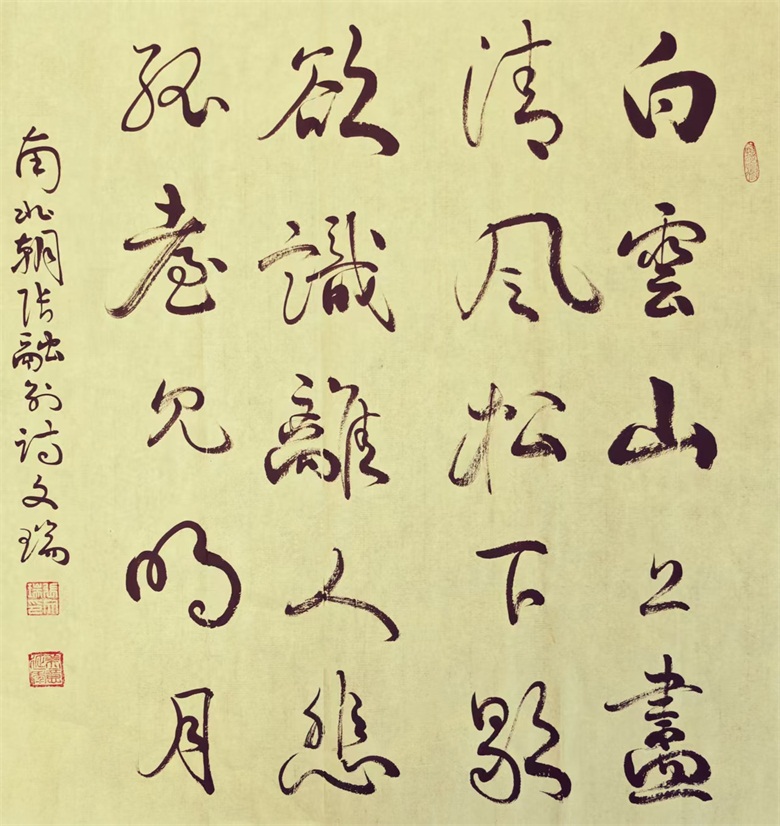 白雲山上盡
清風松下歇
欲識離人悲
孤臺見明月
南北朝張融別詩文瑞